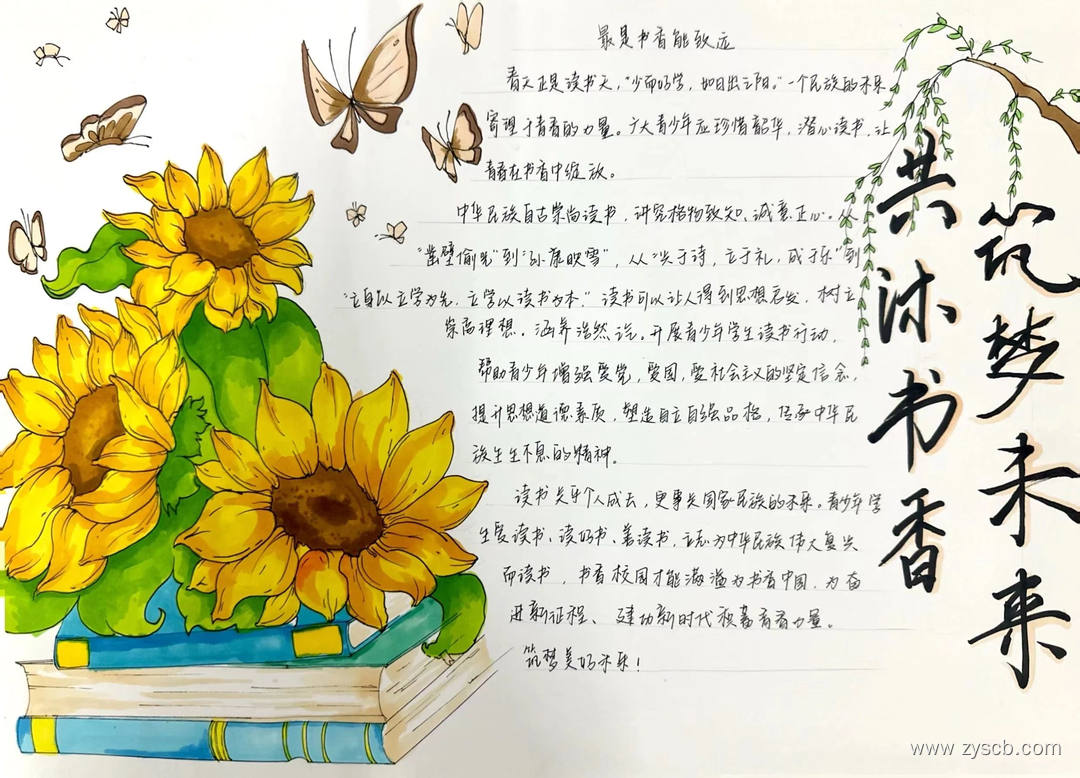 共沐书香
筑梦未来
最是书香能致远
春天正是读书天，“少而好学，如日出之阳。”一个民族的未来
寄望于青春的力量。广大青少年应珍惜韶华，潜心读书，让
青春在书香中绽放。
中华民族自古崇尚读书，讲究格物致知、诚意正心。从
“凿壁偷光”到“孙康映雪”，从“兴于诗，立于礼，成于乐”到
“立身以立学为先，立学以读书为本。”读书可以让人得到思想启发，树立
崇高理想。涵养浩然之气。开展青少年学生读书行动，
帮助青少年增强爱党，爱国，爱社会主义的坚定信念，
提升思想道德素质，塑造自立自强品格，传承中华民
族生生不息的精神。
读书关乎个人成长，更事关国家民族的未来。青少年学
生爱读书、读好书、善读书，立志为中华民族伟大复兴
而读书，书香校园才能满溢为书香中国，为奋
进新征程、建功新时代积蓄青春力量。
筑梦美好未来！
www.zyscb.com